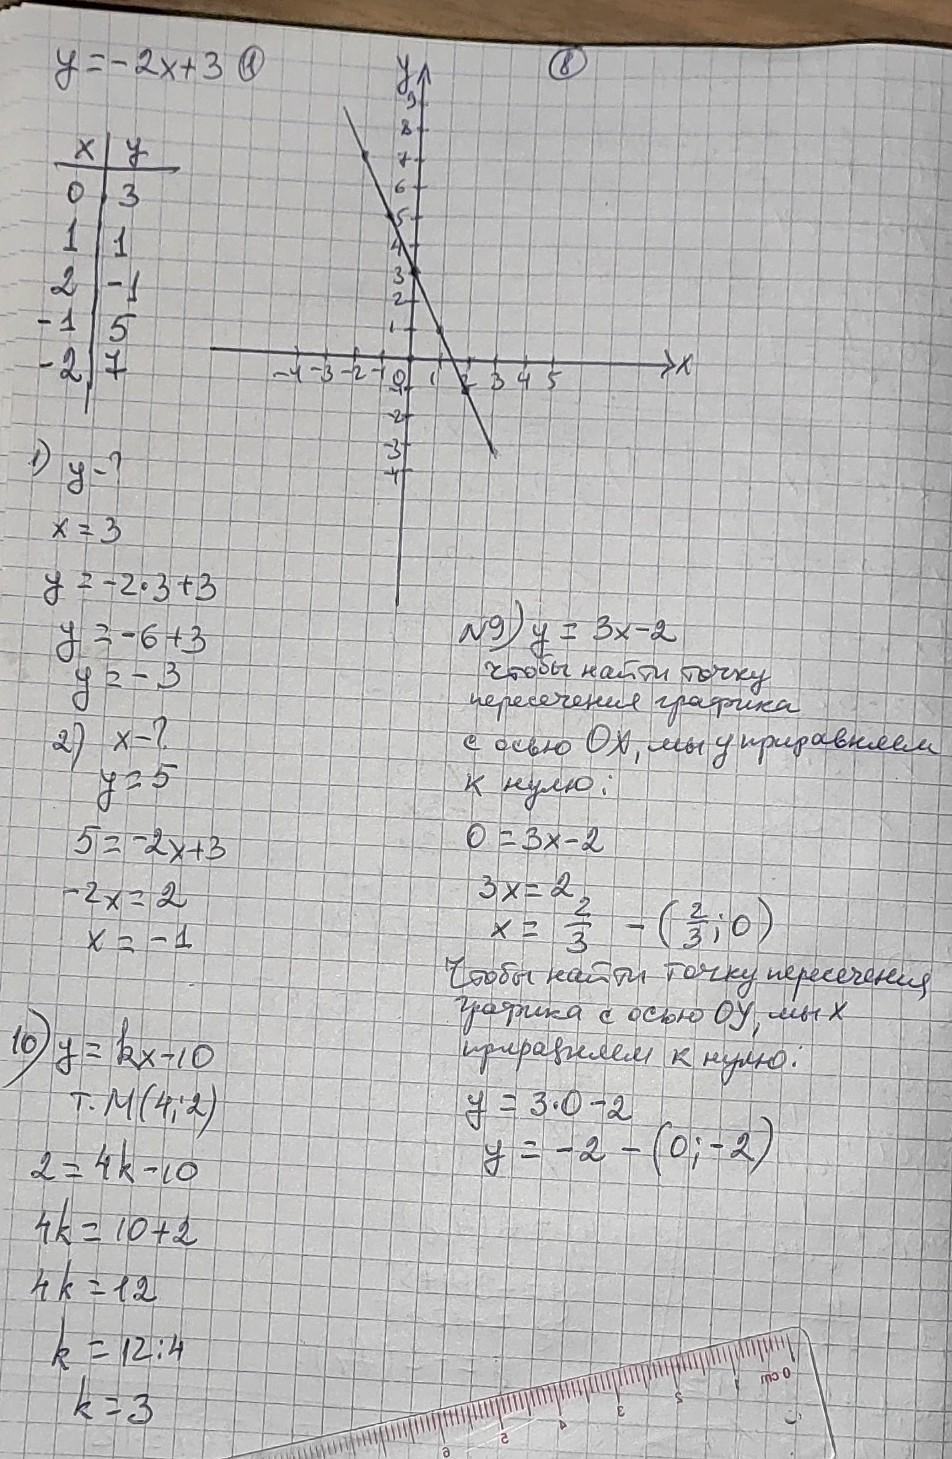 y = -2x+3 ①
⑧
x | y
0 | 3
1 | 1
2 | -1
-1 | 5
-2 | 7
y
9
8
7
6
5
4
3
2
1
-4 -3 -2 -1 0 1 2 3 4 5 x
-2
-3
-4
1) y-?
x = 3
y = -2·3+3
y = -6+3
y = -3
2) x-?
y = 5
5 = -2x+3
-2x = 2
x = -1
10) y = kx-10
т. M(4;2)
2 = 4k-10
4k = 10+2
4k = 12
k = 12:4
k = 3
N9) y = 3x-2
Чтобы найти точку
пересечения графика
с осью OX, мы y приравняем
к нулю:
0 = 3x-2
3x = 2
x = 2/3 - (2/3; 0)
Чтобы найти точку пересечения
графика с осью OY, мы X
приравняем к нулю:
y = 3·0-2
y = -2 - (0; -2)
0 cm 1 2 3 4 5 6